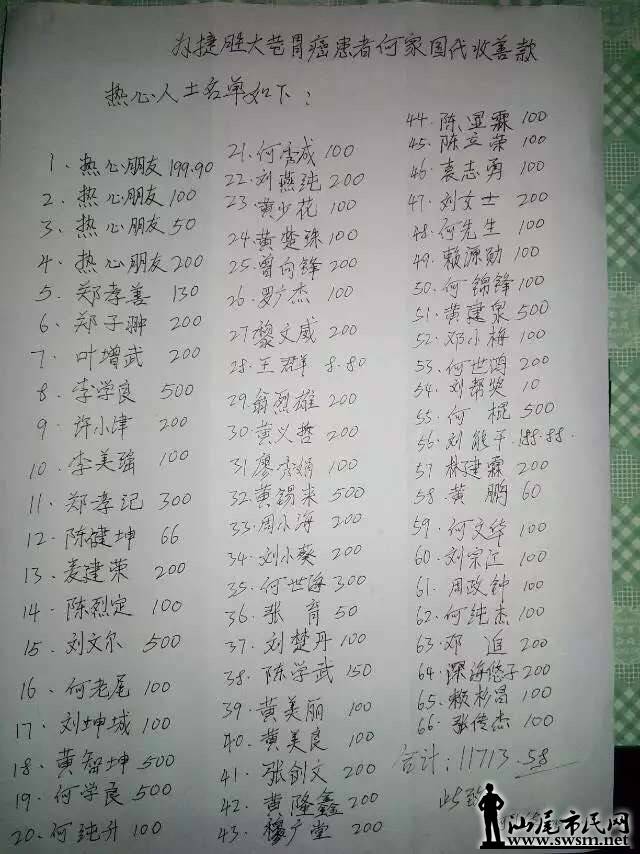 为捷胜大芭胃癌患者何家国代收善款
热心人士名单如下：
1. 热心朋友 199.90
2. 热心朋友 100
3. 热心朋友 50
4. 热心朋友 200
5. 郑孝善 130
6. 郑子翀 200
7. 叶增武 200
8. 李学良 500
9. 许小津 200
10. 李美瑜 100
11. 郑孝记 300
12. 陈禮坤 66
13. 麦建荣 200
14. 陈烈定 100
15. 刘文尔 500
16. 何老尾 100
17. 刘坤城 100
18. 黄智坤 500
19. 何学良 500
20. 何纯升 100
21. 何雪成 100
22. 刘燕纯 200
23. 黄少花 100
24. 黄楚珠 100
25. 曾向锋 200
26. 罗广杰 100
27. 黎文威 200
28. 王群 8.80
29. 翁烈雄 200
30. 黄义哲 200
31. 廖秀娟 100
32. 黄锡米 500
33. 周小海 200
34. 刘小葵 200
35. 何世海 300
36. 张育 50
37. 刘楚丹 100
38. 陈学武 150
39. 黄美丽 100
40. 黄美良 100
41. 张创文 200
42. 黄隆鑫 200
43. 穆广堂 200
44. 陈显霖 100
45. 陈立荣 100
46. 袁志勇 100
47. 刘女士 200
48. 何先生 100
49. 赖源勋 100
50. 何锦锋 100
51. 黄建泉 500
52. 邓小梅 100
53. 何世鸿 200
54. 刘帮奖 10
55. 何棍 500
56. 刘能干 188.88
57. 林建霖 200
58. 黄鹏 60
59. 何文华 100
60. 刘宗江 100
61. 周政钟 100
62. 何纯杰 100
63. 邓追 200
64. 深海悠子 200
65. 赖杉昌 100
66. 张俊杰 100
合计：11713.58
此致
汕尾市民网
www.swsm.net